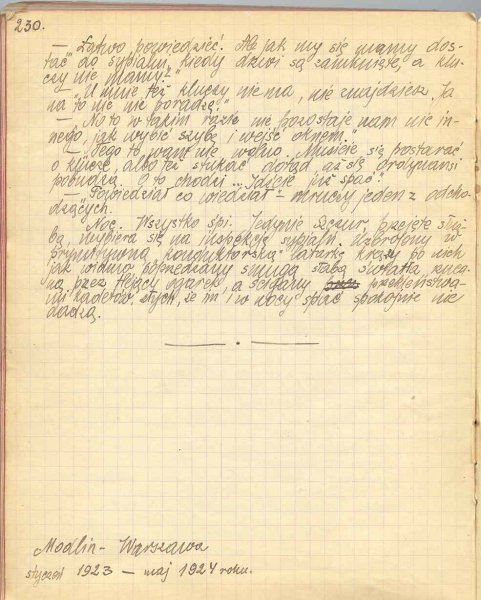 230.
— Łatwo powiedzieć! Ale jak my się mamy dos-
tać do sypialni, kiedy drzwi są zamknięte, a klu-
czy nie mamy?"
— „U mnie też kluczy nie ma, nie znajdziesz. Ja
na to nic nie poradzę."
— „No to w takim razie nie pozostaje nam nic in-
nego, jak wybić szybę i wejść oknem."
— „Tego to wam nie wolno. Musicie się postarać
o klucze, albo też stukać dotąd aż się ordynansi
pobudzą. O to chodzi... Idźcie już spać."
„Powiedział co wiedział" — mruczy jeden z odcho-
dzących.
Noc. Wszystko śpi. Jedynie Szczur, przejęty służ-
bą, wybiera się na inspekcję sypialń. Uzbrojony w
prymitywną „konduktorską" latarkę krąży po nich
jak widmo poprzedzany smugą słabą światła, rzuca-
ną przez tlejący ogarek, a ścigany przekleństwa-
mi kadetów, złych, że im i w nocy spać spokojnie nie
dadzą.
Modlin – Warszawa
styczeń 1923 – maj 1924 roku.